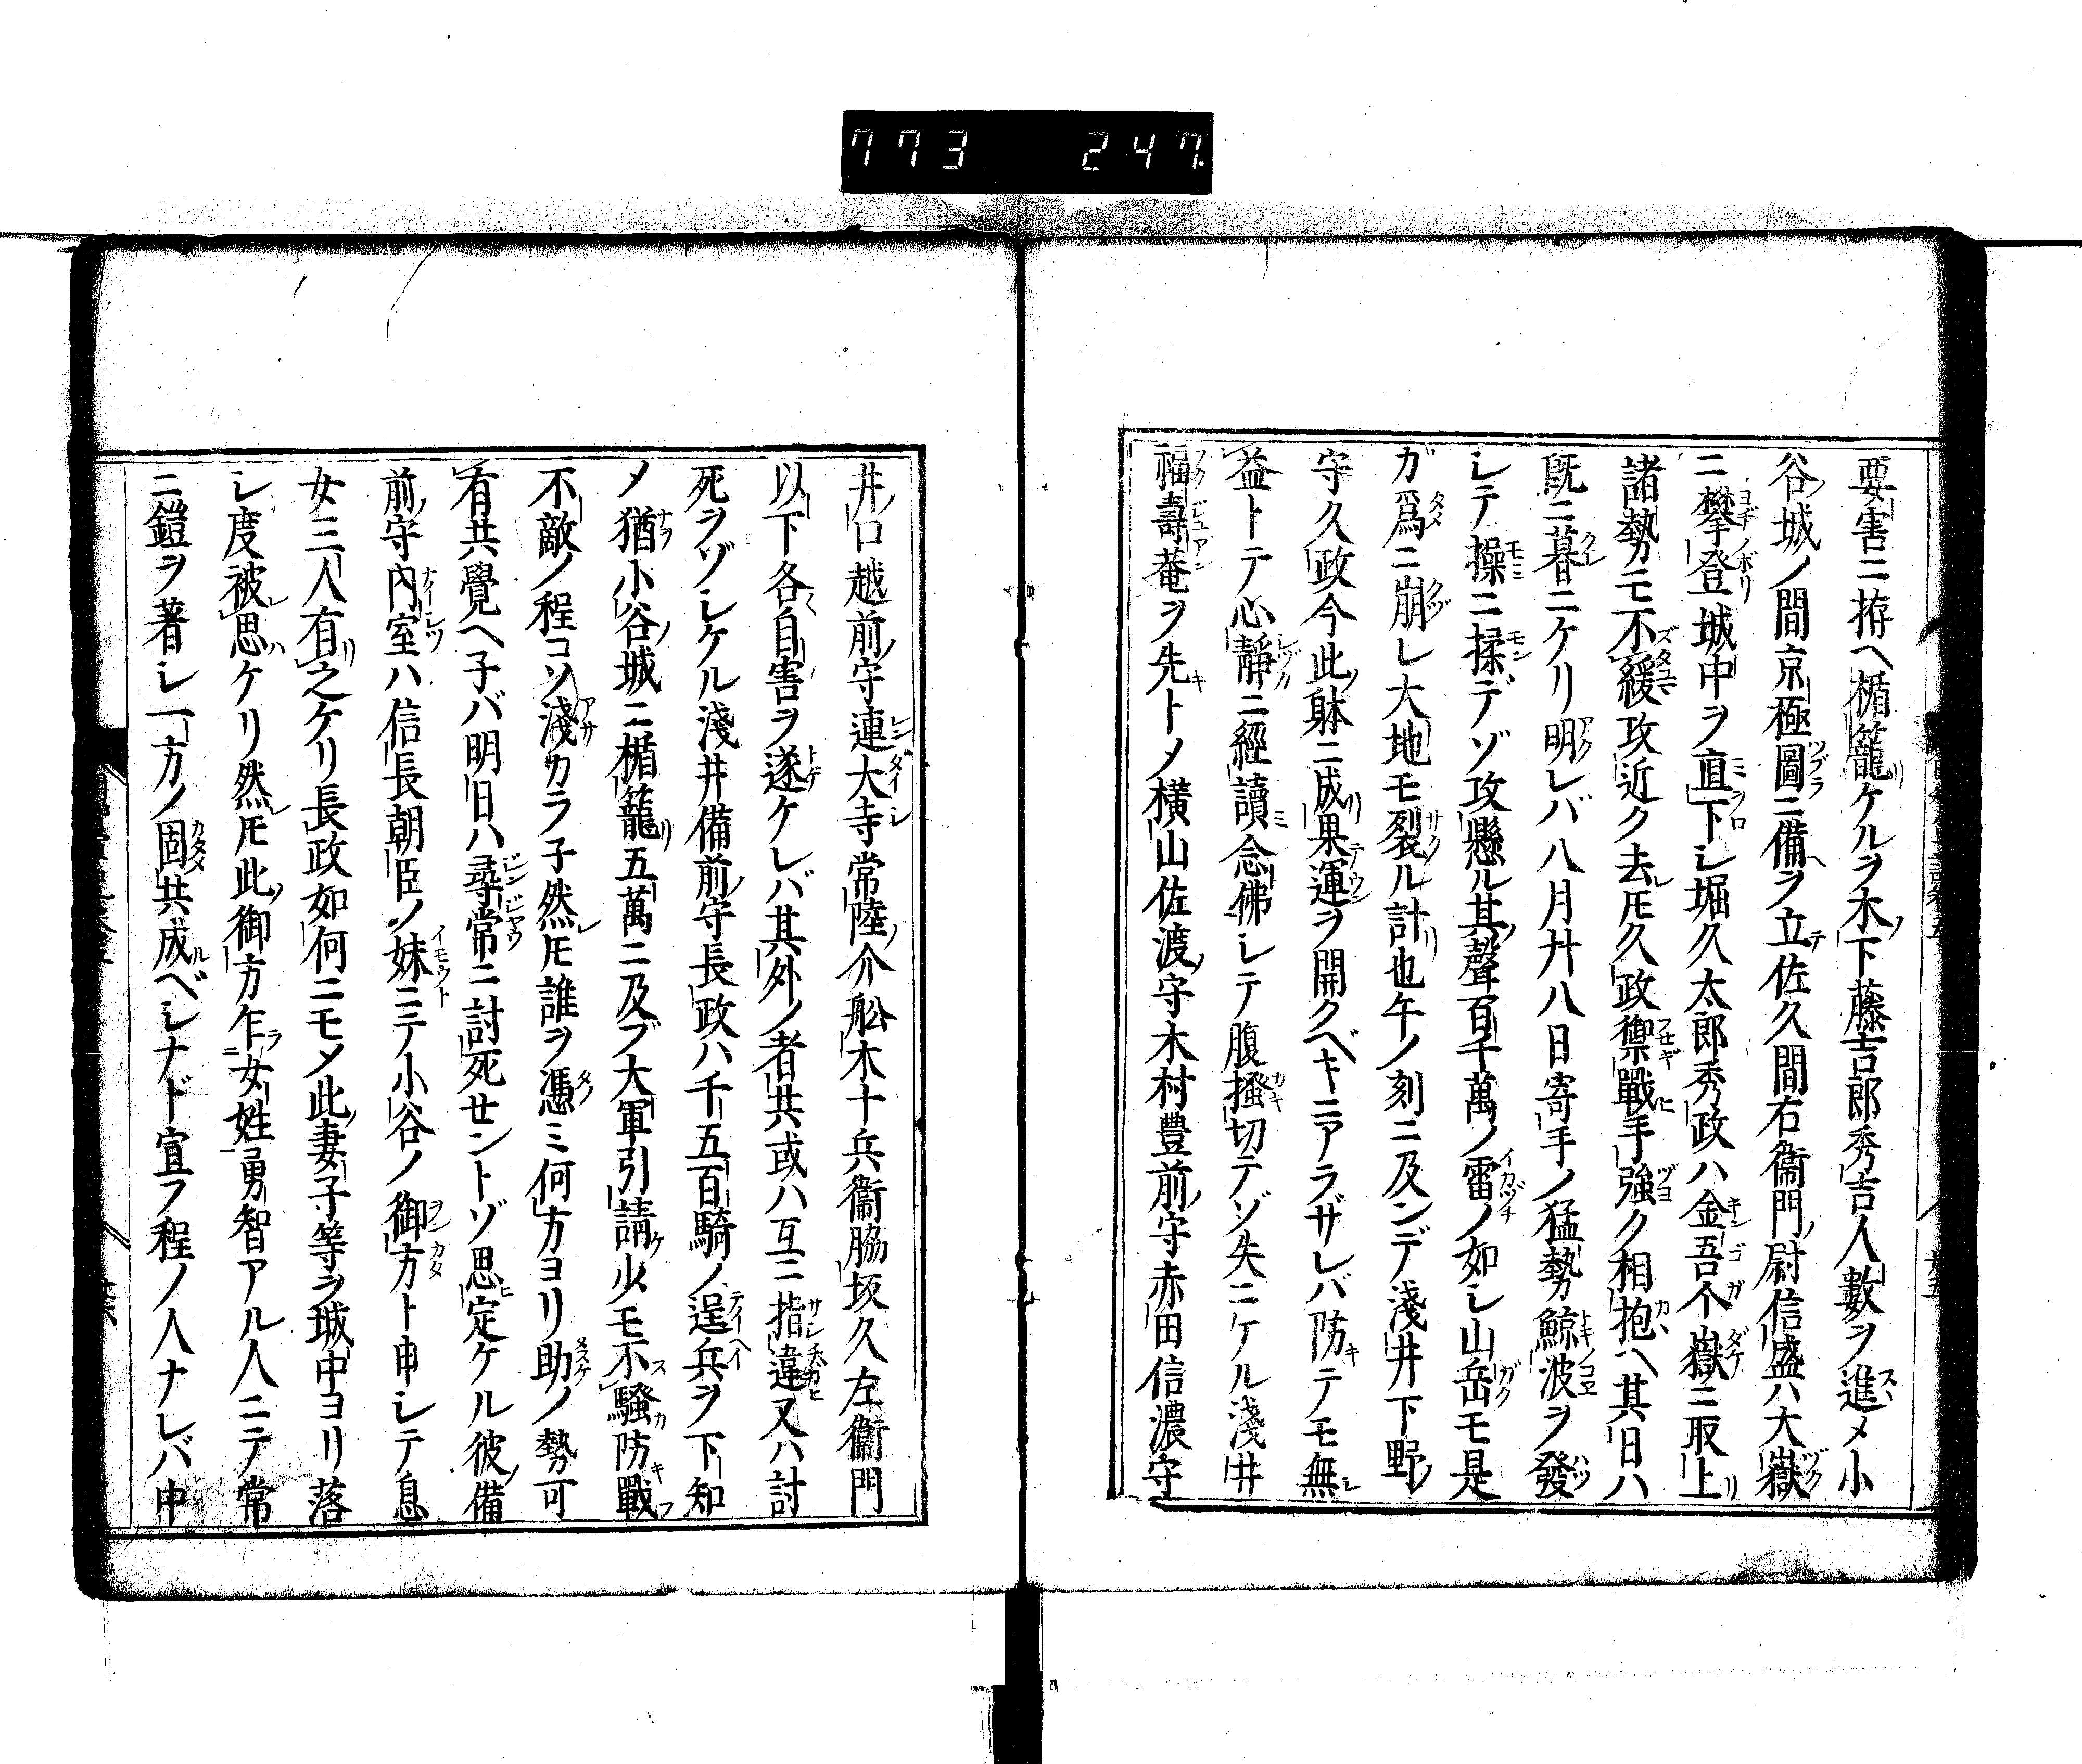 773 247
要害ニ拵ヘ楯籠ケルヲ木下藤吉郎秀吉人數ヲ進メ小
谷城ノ間京極圖ニ備ヲ立テ佐久間右衞門尉信盛ハ大嶽
ニ攀登城中ヲ直下シ堀久太郎秀政ハ金吾个嶽ニ取上
諸勢モ不緩攻近ク去𪜈久政禦戰手強ク相抱ヘ其日ハ
既ニ暮ニケリ明レバ八月廿八日寄手ノ猛勢鯨波ヲ發
シテ操ニ揉デゾ攻懸ル其聲百千萬ノ雷ノ如シ山岳モ是
ガ爲ニ崩レ大地モ裂ル計也午ノ刻ニ及ンデ淺井下野
守久政今此躰ニ成果運ヲ開クベキニアラザレバ防テモ無
益トテ心靜ニ經讀念佛シテ腹搔切テゾ失ニケル淺井
福壽菴ヲ先トメ橫山佐渡守木村豊前守赤田信濃守
井口越前守連大寺常陸介舩木十兵衞脇坂久左衞門
以下各自害ヲ遂ケレバ其外ノ者共或ハ互ニ指違又ハ討
死ヲゾシケル淺井備前守長政ハ千五百騎ノ逞兵ヲ下知
メ猶小谷城ニ楯籠五萬ニ及ブ大軍引請少モ不騷防戰
不敵ノ程コソ淺カラ子然𪜈誰ヲ憑ミ何方ヨリ助ノ勢可
有共覺ヘ子バ明日ハ尋常ニ討死セントゾ思定ケル彼備
前守內室ハ信長朝臣ノ妹ニテ小谷ノ御方ト申シテ息
女三人有之ケリ長政如何ニモメ此妻子等ヲ城中ヨリ落
シ度被思ケリ然𪜈此御方乍女姓勇智アル人ニテ常
ニ鎧ヲ著シ一方ノ固共成ベシナド宣フ程ノ人ナレバ中